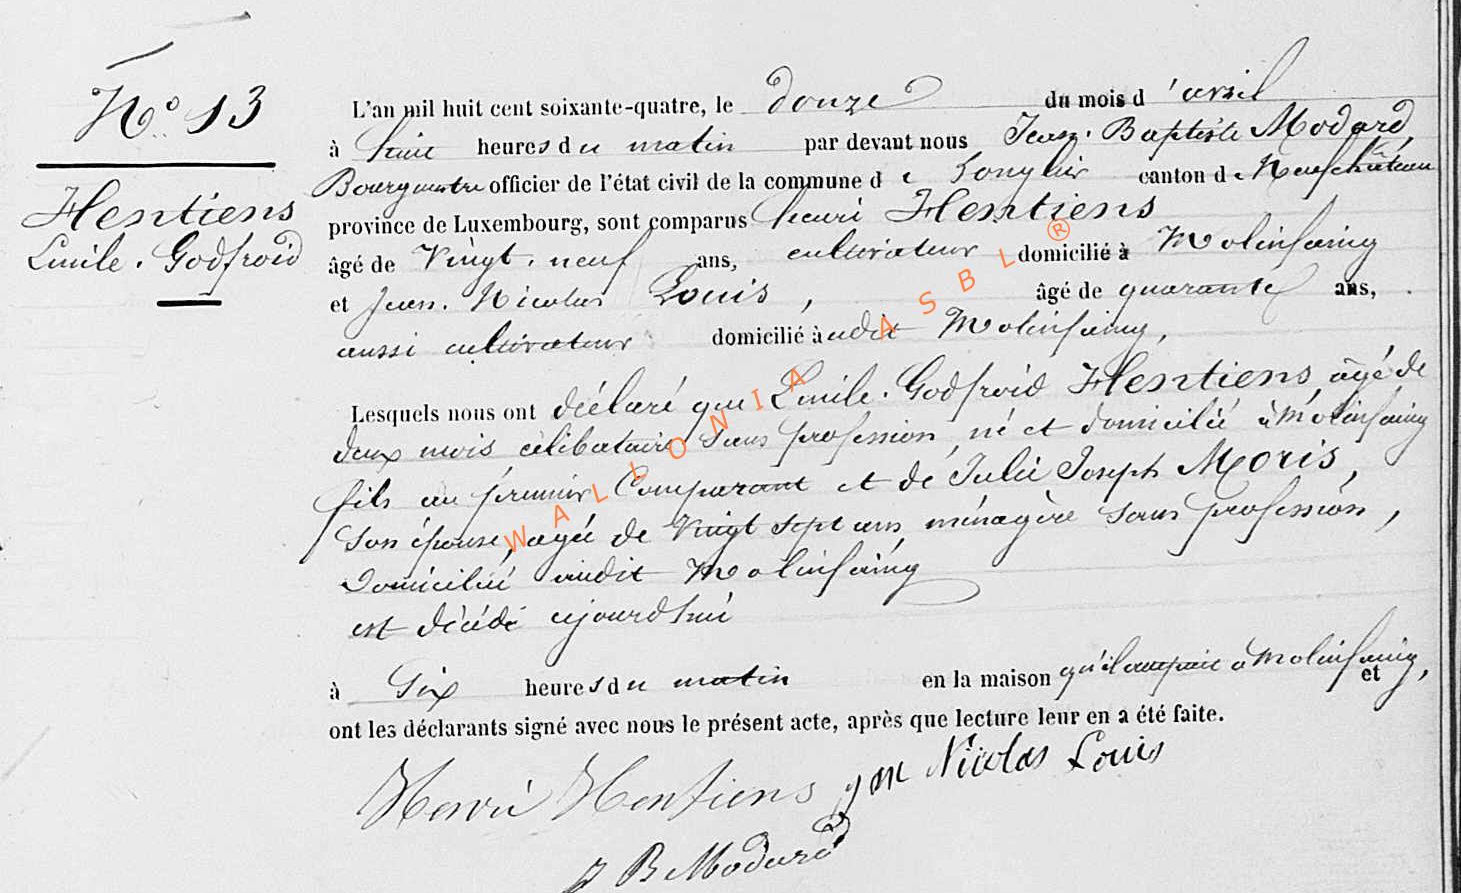 N° 13
Hentiens
Emile. Godfroid
L'an mil huit cent soixante-quatre, le douze du mois d'avril
à huit heures du matin par devant nous Jean. Baptiste Modard,
Bourgmestre officier de l'état civil de la commune de Longlier canton de Neufchâteau
province de Luxembourg, sont comparus henri Hentiens
âgé de Vingt. neuf ans, cultivateur domicilié à Molinfaing
et Jean. Nicolas Louis, âgé de quarante ans,
aussi cultivateur domicilié audit Molinfaing,
Lesquels nous ont déclaré que Emile. Godfroid Hentiens, âgé de
deux mois célibataire sans profession, né et domicilié à Molinfaing
fils au premier Comparant et de Julie Joseph Moris,
son épouse, agée de Vingt sept ans, ménagère sans profession,
domiciliée audit Molinfaing
est décédé aujourd'hui
à Six heures du matin en la maison qu'il occupait à Molinfaing, et
ont les déclarants signé avec nous le présent acte, après que lecture leur en a été faite.
Henri Hentiens Jn Nicolas Louis
J B Modard
WALLONIA ASBL ®